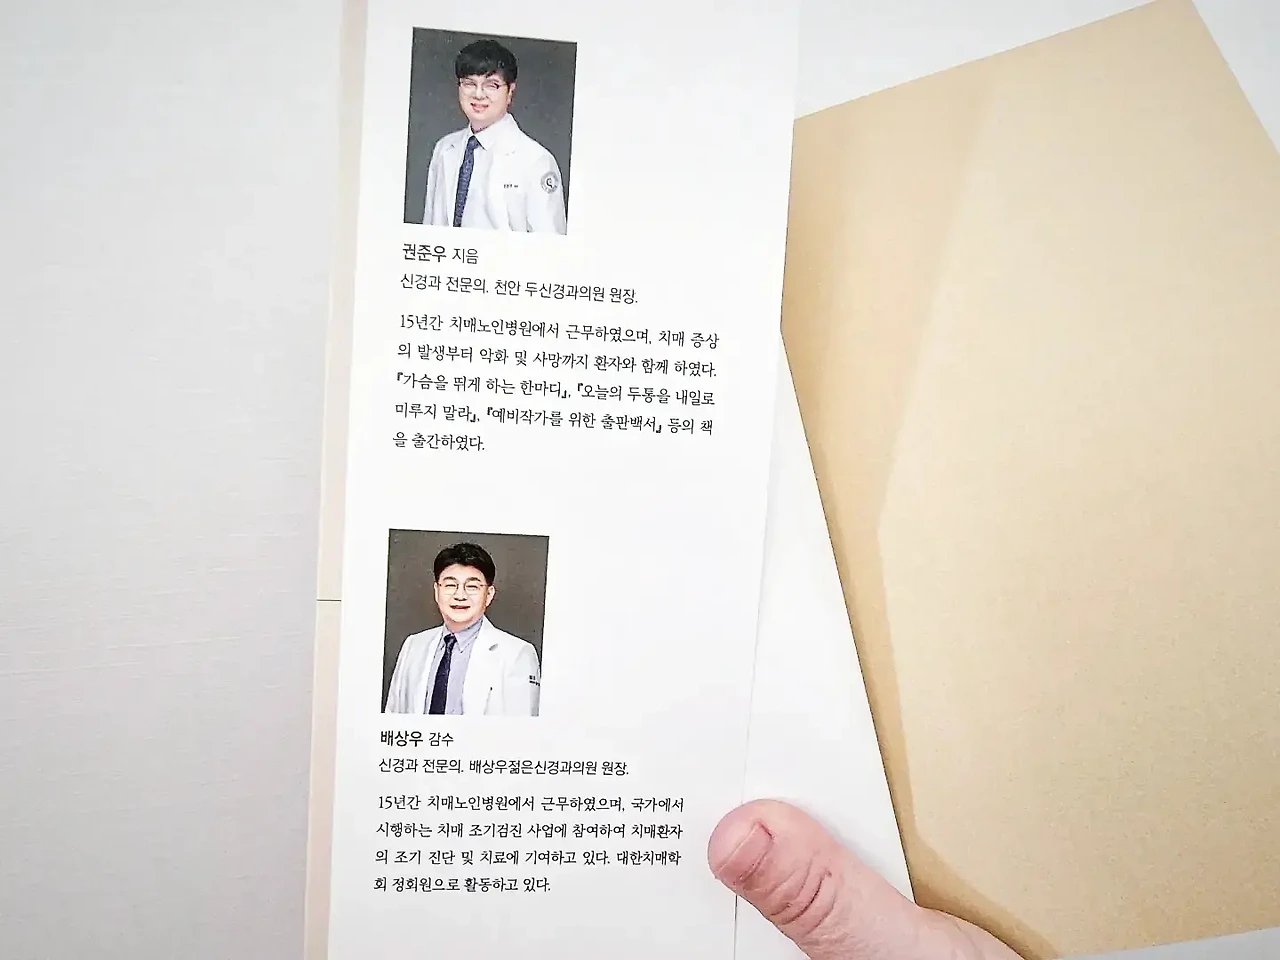 권준우 지음
신경과 전문의. 천안 두신경과의원 원장.
15년간 치매노인병원에서 근무하였으며, 치매 증상
의 발생부터 악화 및 사망까지 환자와 함께 하였다.
『가슴을 뛰게 하는 한마디』, 『오늘의 두통을 내일로
미루지 말라』, 『예비작가를 위한 출판백서』 등의 책
을 출간하였다.
배상우 감수
신경과 전문의. 배상우젊은신경과의원 원장.
15년간 치매노인병원에서 근무하였으며, 국가에서
시행하는 치매 조기검진 사업에 참여하여 치매환자
의 조기 진단 및 치료에 기여하고 있다. 대한치매학
회 정회원으로 활동하고 있다.